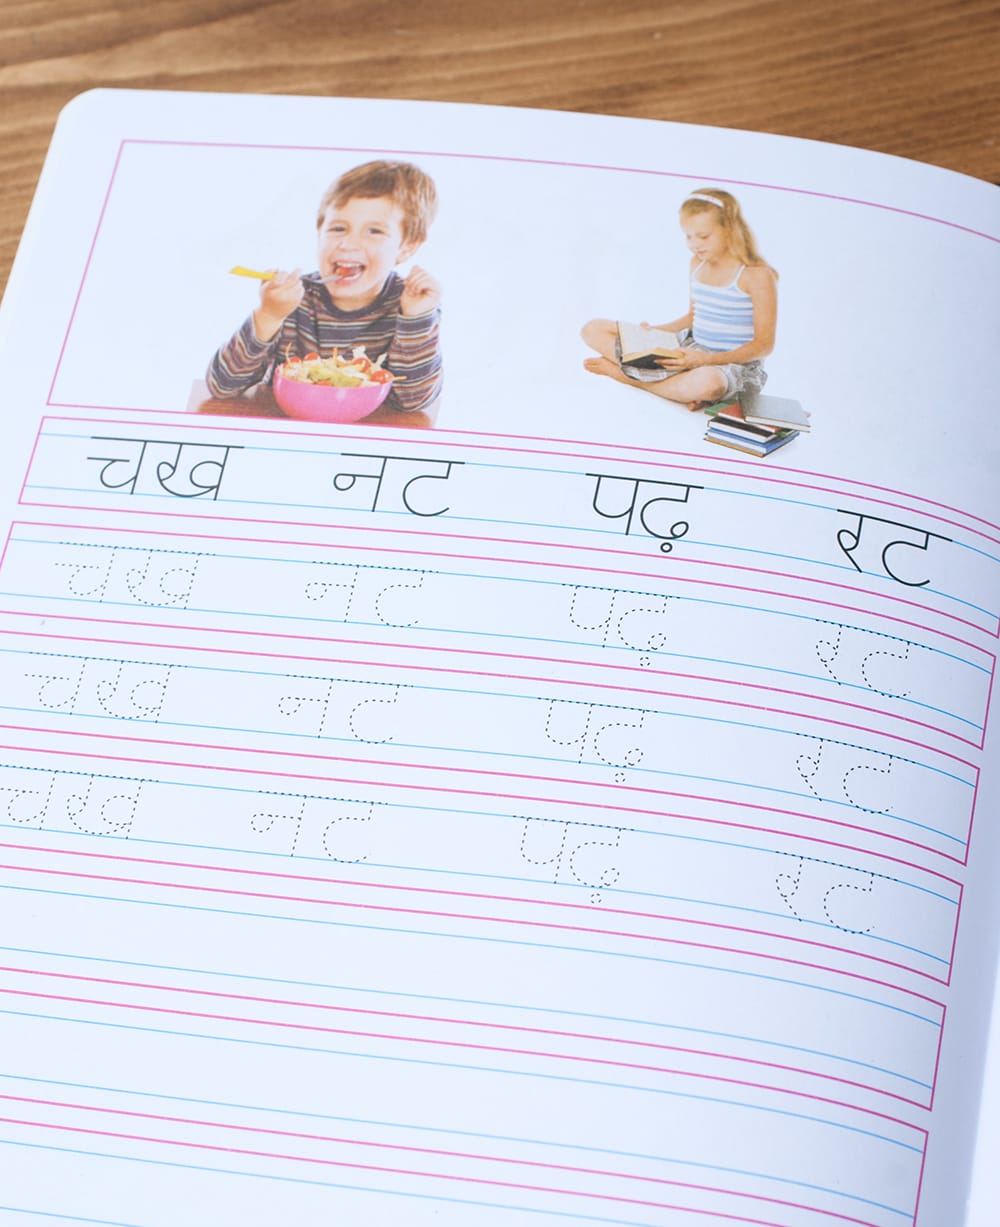 चख नट पढ़ रट
चख नट पढ़ रट
चख नट पढ़ रट
चख नट पढ़ रट